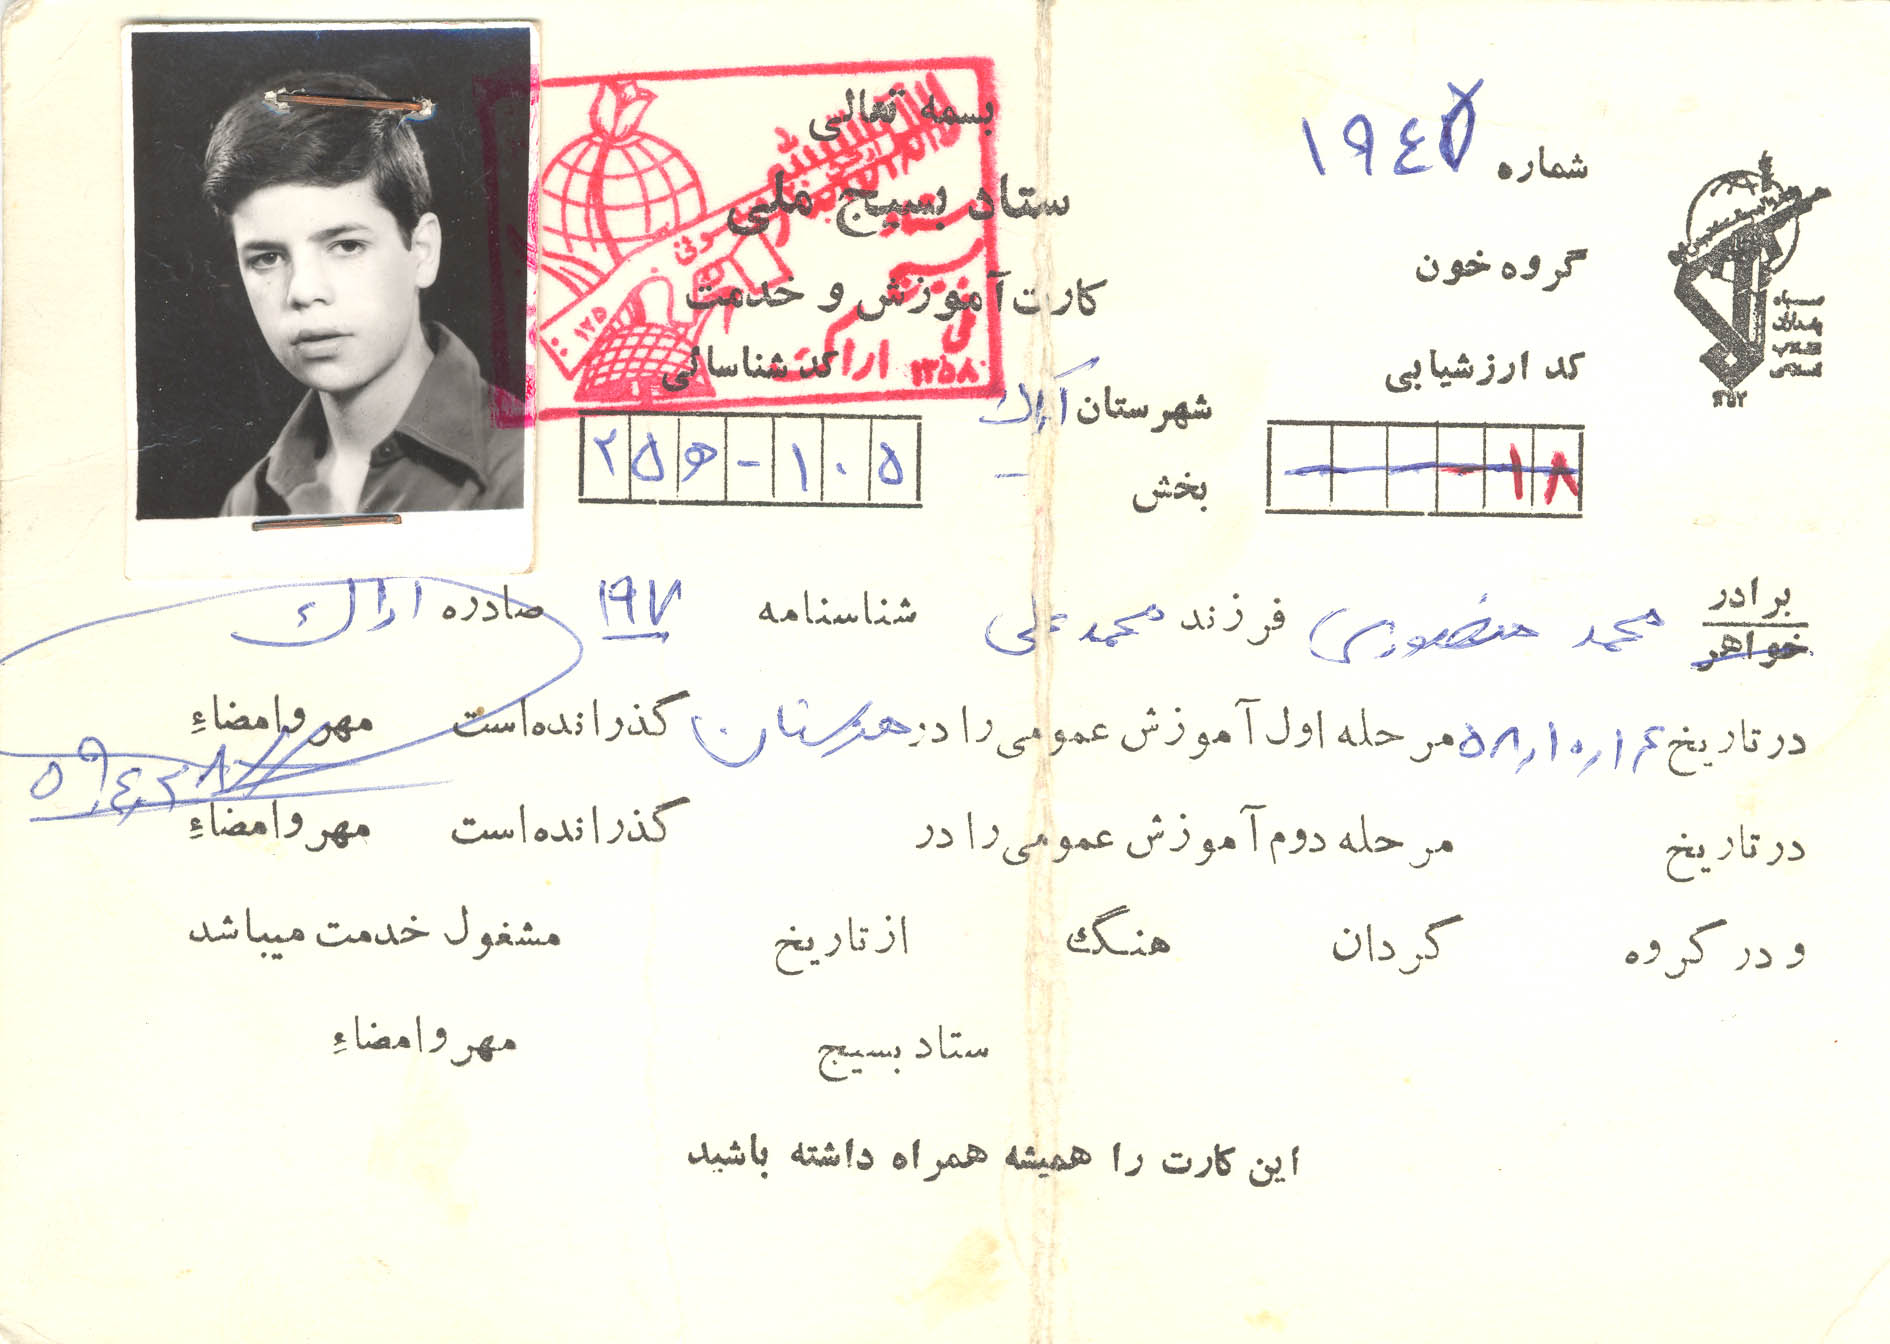 بسمه تعالی
ستاد بسیج ملی
کارت آموزش و خدمت
کد شناسائی
۲۵۶-۱۰۵
شهرستان اراک
بخش -
شماره ۱۹۴۷
گروه خون
کد ارزشیابی
۱۸
سپاه
پاسداران
انقلاب
اسلامی
اراک
۱۳۵۸
برادر
خواهر
محمد منصوری فرزند محمد علی شناسنامه ۱۹۷ صادره اراک
در تاریخ ۵۸٫۱۰٫۱۴ مرحله اول آموزش عمومی را در هنرستان گذرانده است مهر و امضاءِ
در تاریخ مرحله دوم آموزش عمومی را در گذرانده است مهر و امضاءِ
و در گروه گردان هنگ از تاریخ مشغول خدمت میباشد
ستاد بسیج مهر و امضاءِ
این کارت را همیشه همراه داشته باشید